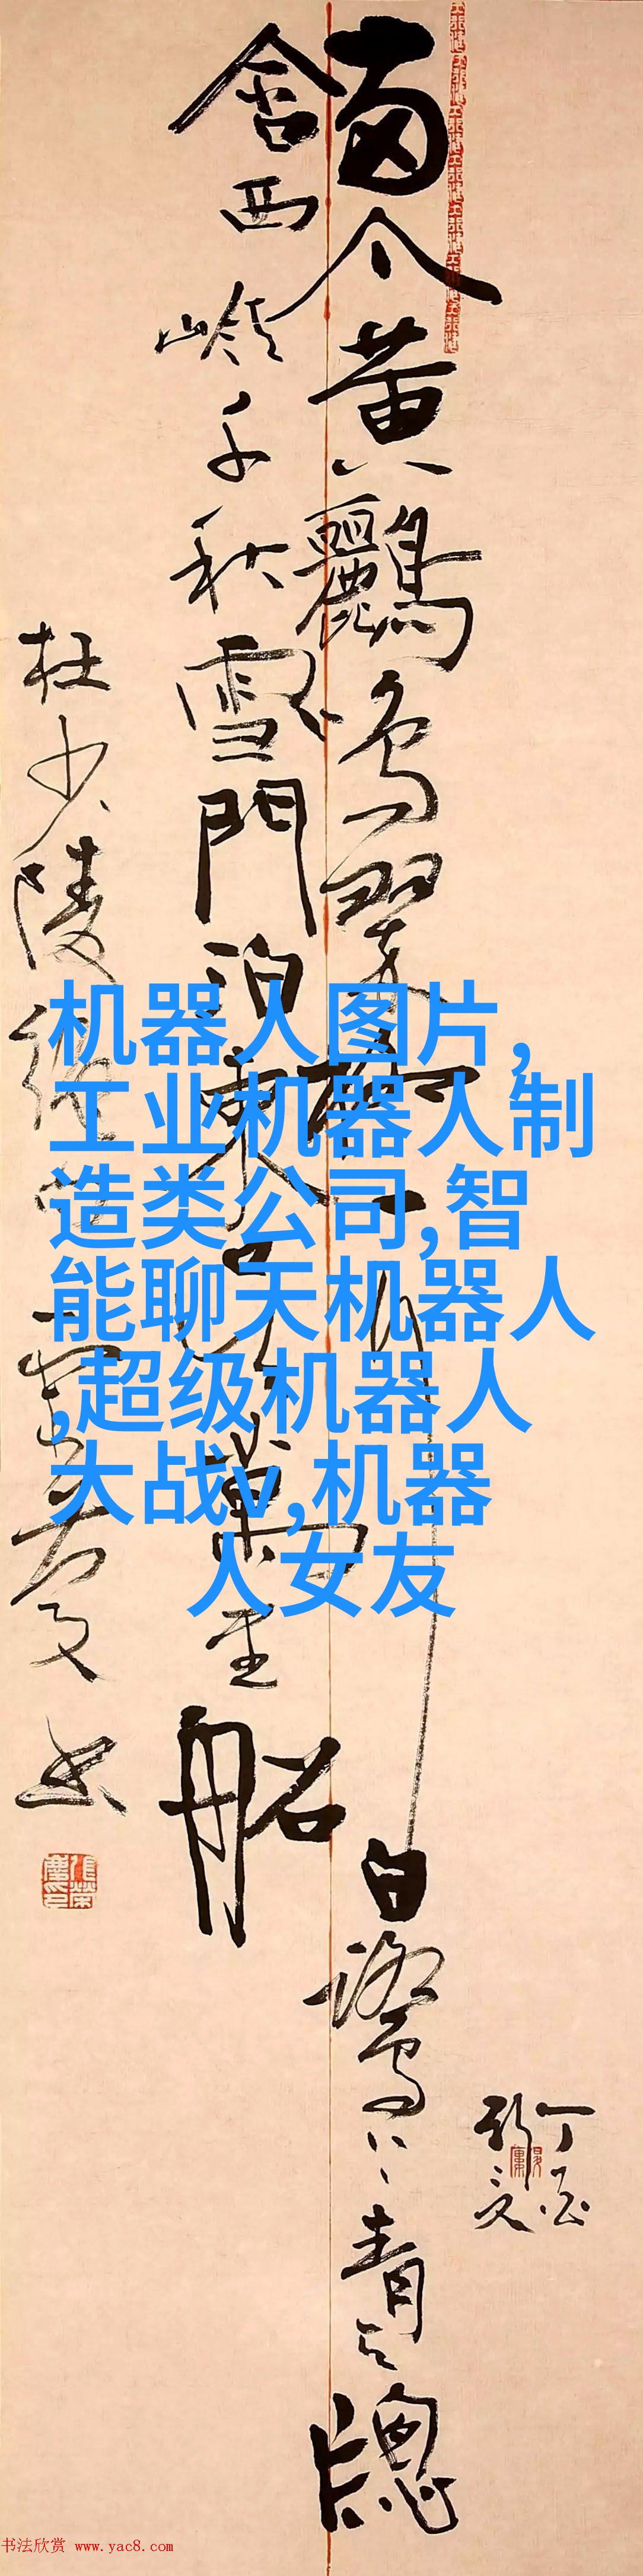 兩个黄鸝鸣翠柳一行白鷺上青天牕
含西岭千秋雪門泊東吴萬里船
杜少陵絶句
机器人图片,
工业机器人制
造类公司,智
能聊天机器人
,超级机器人
大战v,机器
人女友
书法欣赏 www.yac8.com